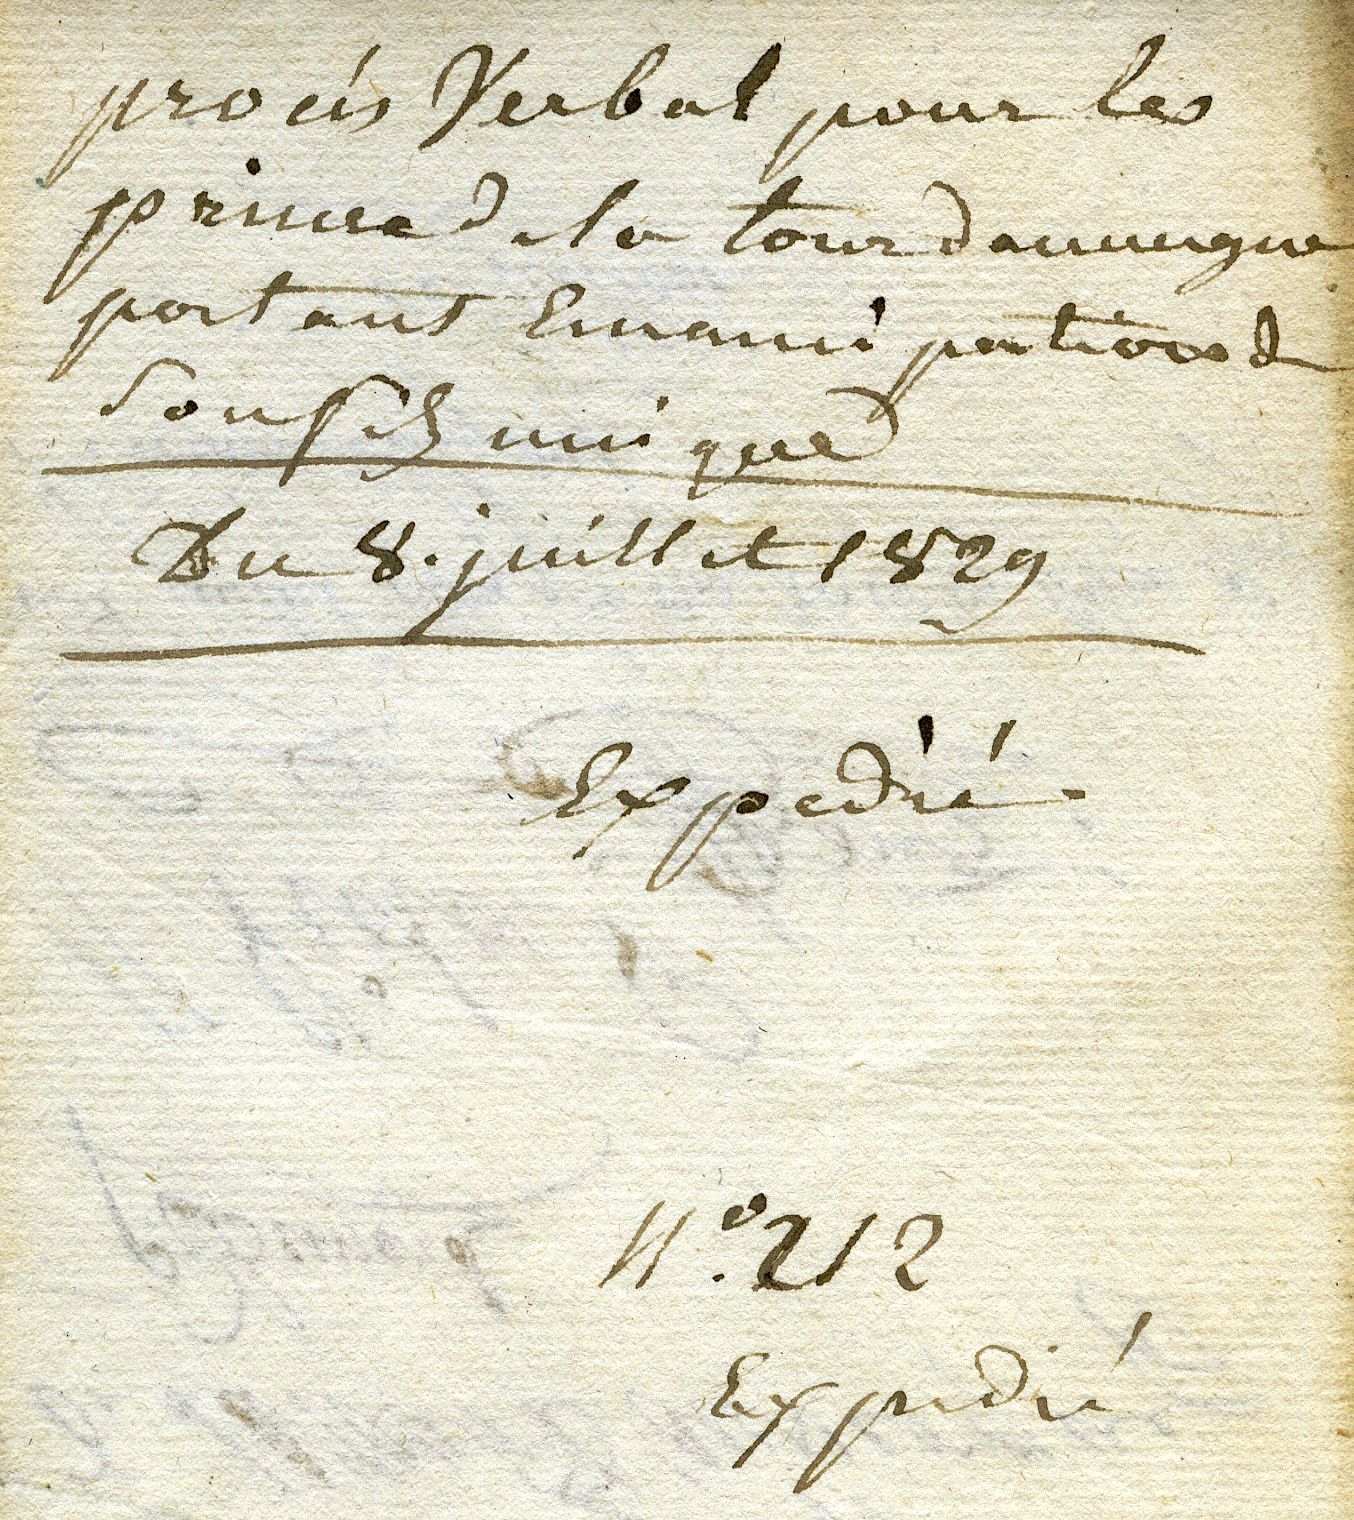 procès Verbal pour les
prince de la tour dauvergne
portant Emancipation de
Son fils unique
Du 8. juillet 1829
Expedié
N.º 212
Expedié